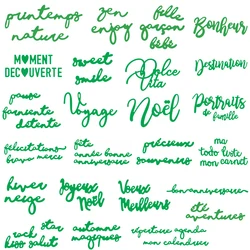 printemps
nature
zen
enjoy
fille
garçon
bébé
Bonheur
MOMENT
DECOUVERTE
sweet
smile
Dolce
Vita
Destination
pause
farniente
détente
Voyage
Noël
Portraits
de famille
félicitations
bravo merci
fête
année bonne
anniversaire
précieux
souvenirs
ma
todo liste
mon carnet
hiver
neige
Joyeux
Noël
Voeux
Meilleurs
bon anniversaire
été
aventures
star
rock
kiss
automne
magiques
répertoire agenda
mon calendrier